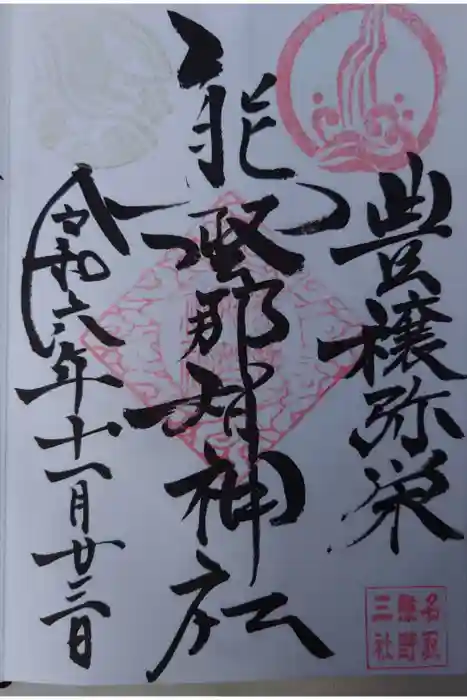 豊穣弥栄
熊野那智神社
令和六年十一月廿三日
名取
熊野
三社